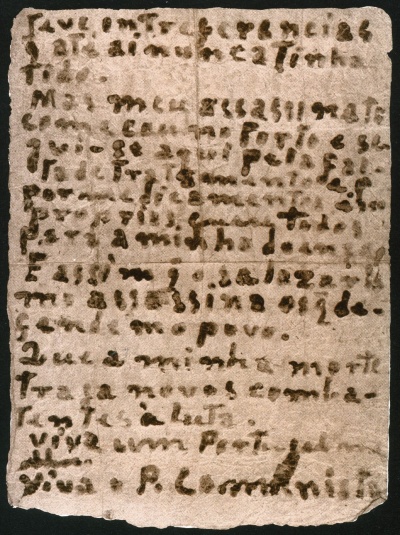 tive intreferencias
q até ai nunca tinha
tido.
Mas meu assassinato
começou no Porto e se
guio-se aqui pela fal-
ta de tratamento e
por medicamentos im
proprios
para a minha doença
E assim q o salazaris
mo assassina os q de-
fendem o povo.
Que a minha morte
traga novos comba-
tentes à luta.
Viva um Portugal
Viva o P. Comunista